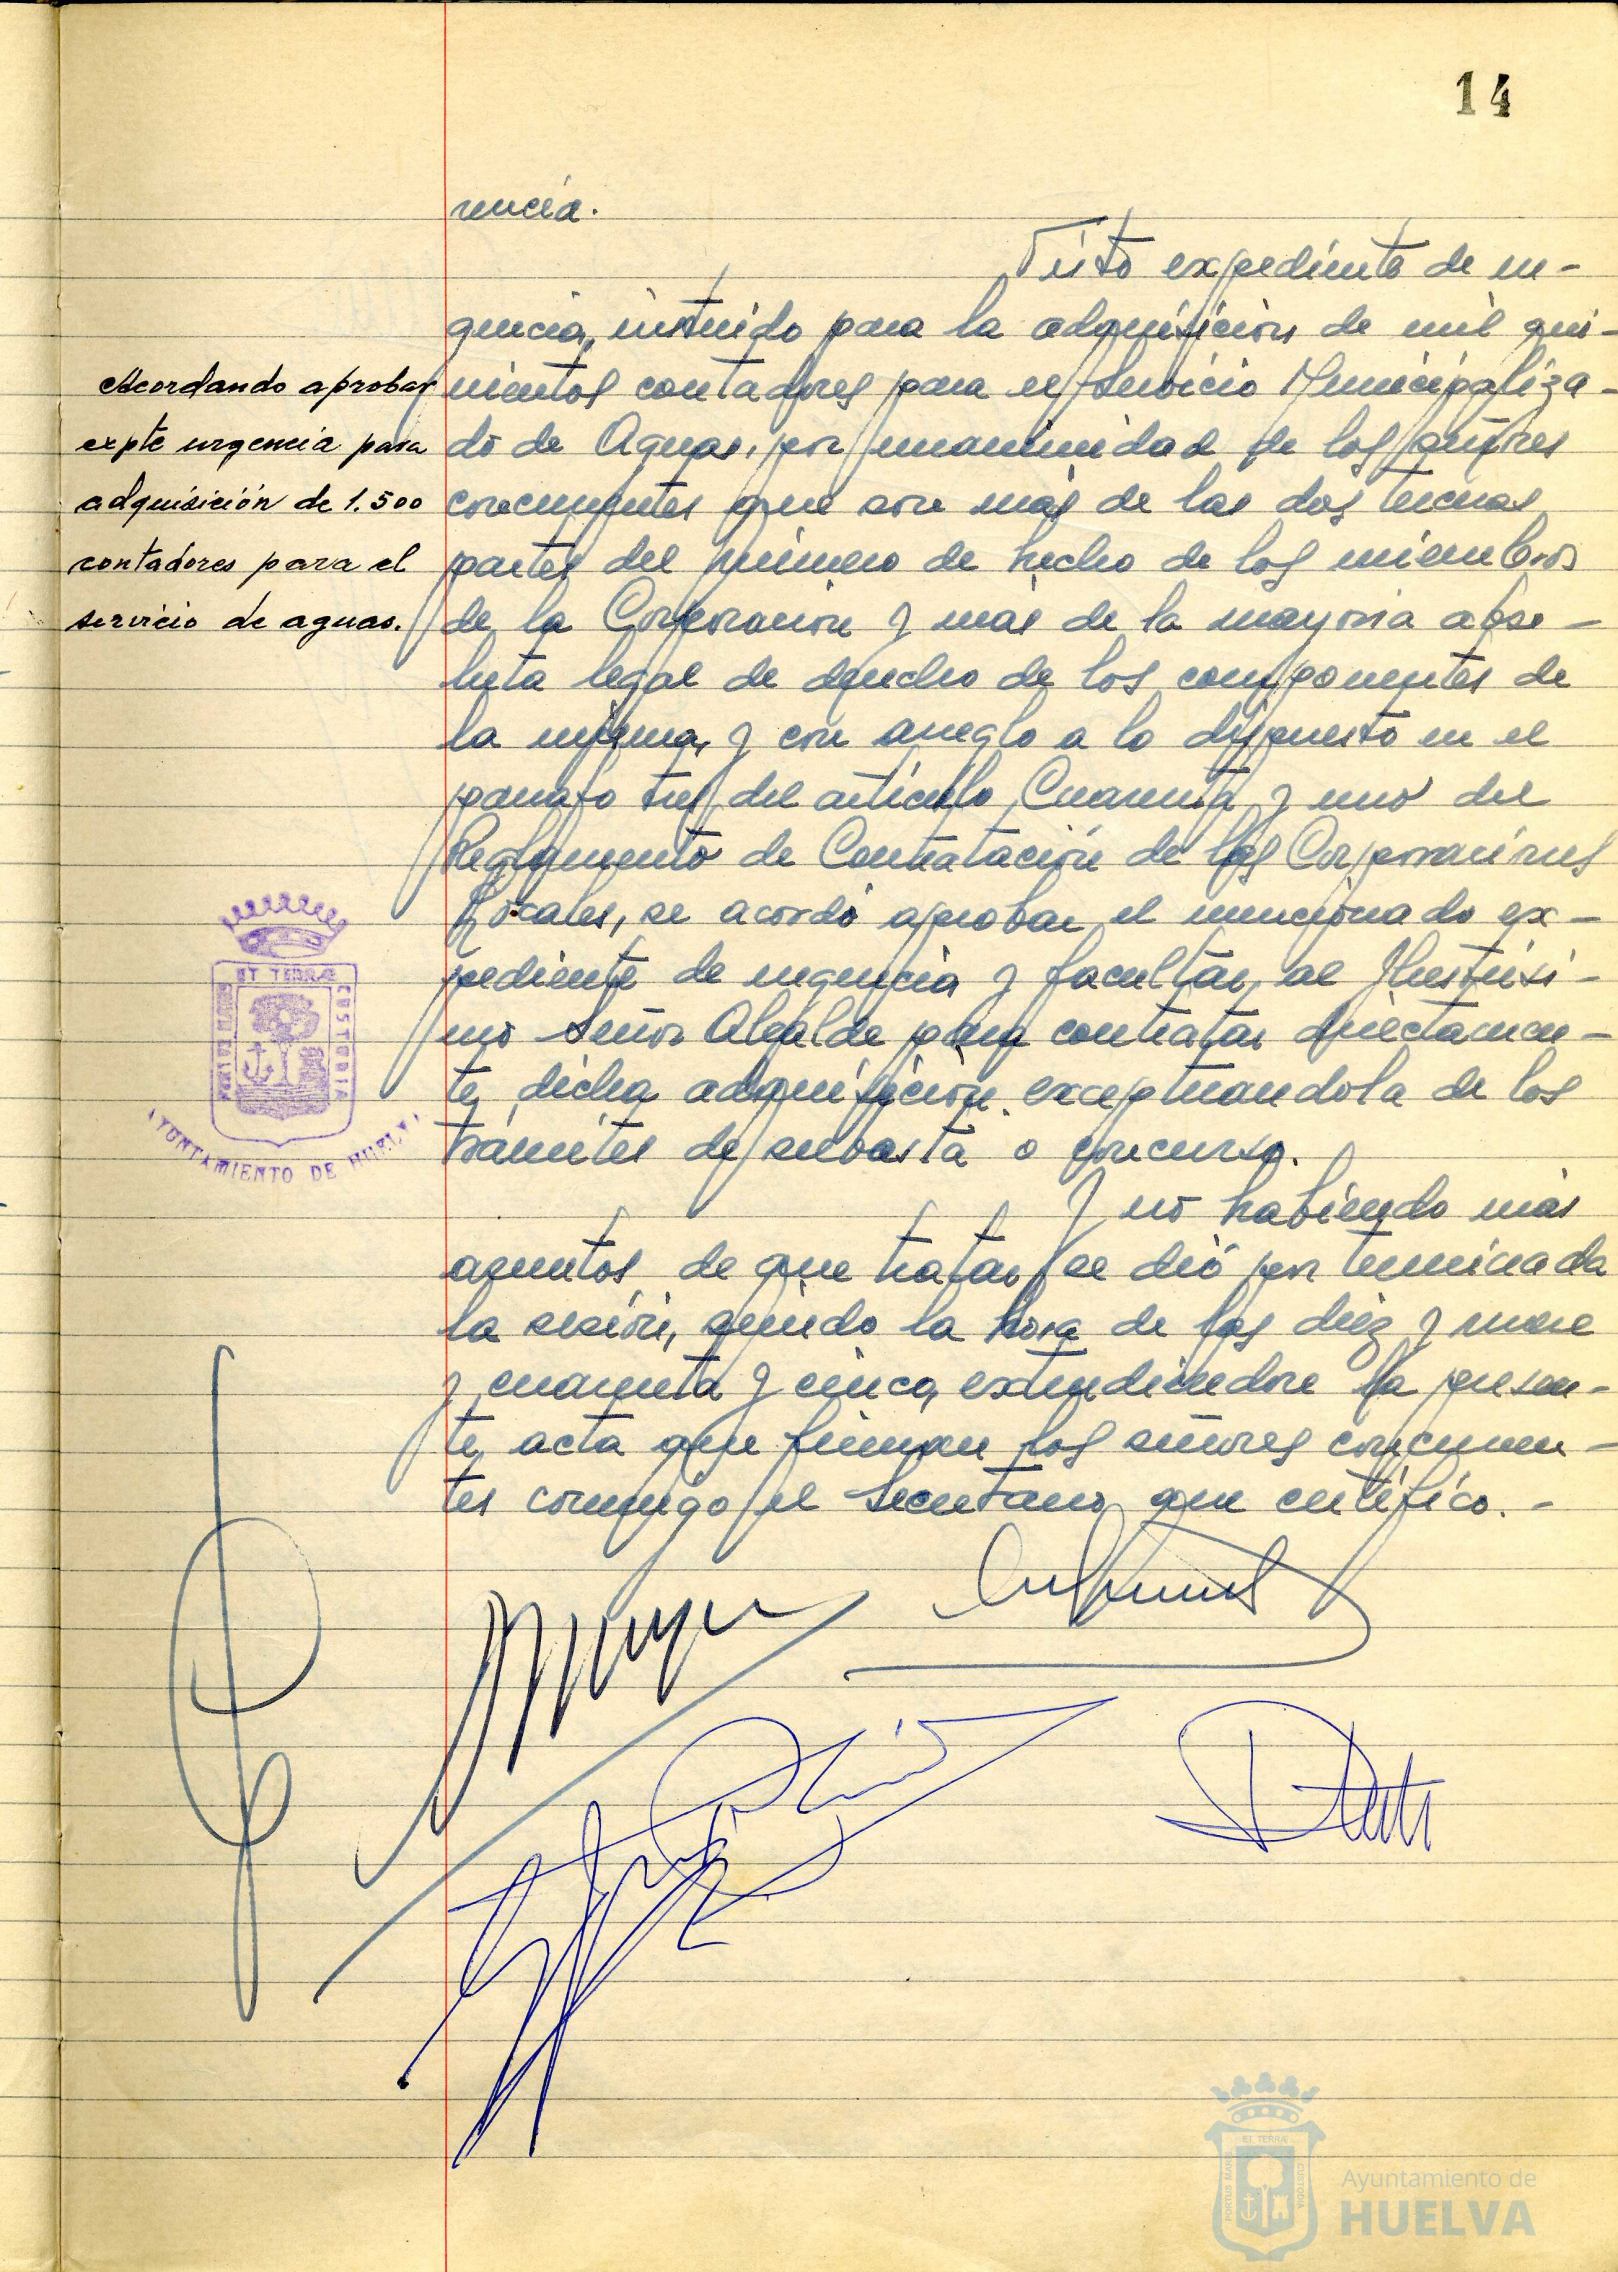 14
rencia.
Visto expediente de ur-
gencia, instruido para la adquisición de mil qui-
Acordando aprobar
expte urgencia para
adquisición de 1.500
contadores para el
servicio de aguas.
nientos contadores para el Servicio Municipaliza-
do de Aguas, por unanimidad de los señores
concurrentes que son más de las dos terceras
partes del número de hecho de los miembros
de la Corporación y más de la mayoria abso-
luta legal de derecho de los componentes de
la misma, y con arreglo a lo dispuesto en el
parrafo tres del articulo Cuarenta y uno del
Reglamento de Contratación de las Corporaciones
Locales, se acordó aprobar el mencionado ex-
pediente de urgencia y facultar al Ilustrisi-
mo Señor Alcalde para contratar directamen-
te dicha adquisición exceptuandola de los
trámites de subasta o concurso.
Y no habiendo más
asuntos de que tratar se dió por terminada
la sesión, siendo la hora de las diez y nueve
y cuarenta y cinco, extendiendose la presen-
te acta que firman los señores concurren-
tes conmigo el Secretario que certifico. -
ET TERRÆ
CUSTODIA
AYUNTAMIENTO DE HUELVA
PORTUS MARIS
ET TERRÆ
CUSTODIA
Ayuntamiento de
HUELVA